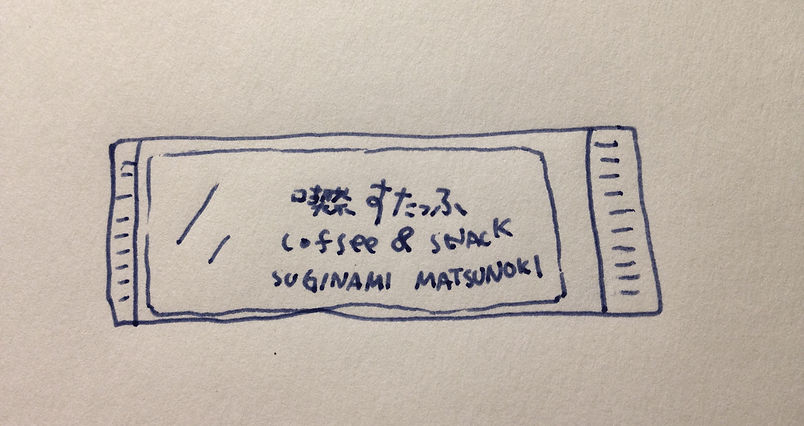 喫茶 すたっふ
Coffee & SNACK
SUGINAMI MATSUNOKI